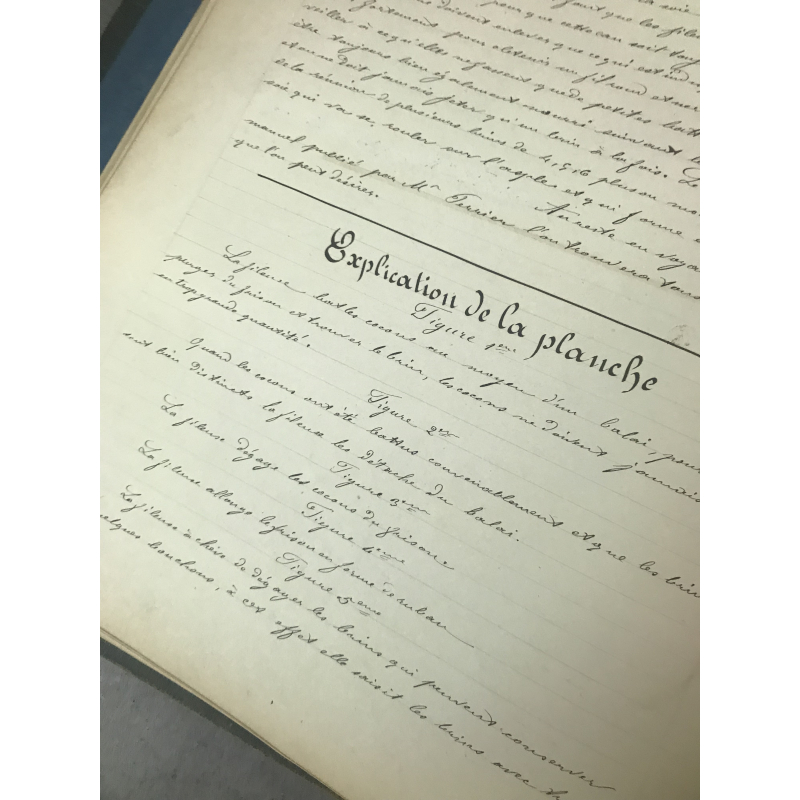 pour que cette eau soit
ne doivent enlever que ce qui est
fortement, pour obtenir un fil rond et ner
veiller à ce qu'elles ne fassent que de petites batt
être toujours bien également nourri suivant le
et on ne doit jamais jeter qu'un brin à la fois. Le
de la réunion de plusieurs brins de 4, 5, 6 plus ou mo
soie qui va se rouler sur l'asple et qui forme
Au reste en voya
manuel publié par Mr Ferrier l'on trouvera tous
que l'on peut désirer.
Explication de la planche
Figure 1ère
La fileuse bat les cocons au moyen d'un balai, pour
purger du frison et trouver le brin, les cocons ne doivent jamais
en trop grande quantité.
Figure 2me
Quand les cocons ont été battus convenablement et que les brin
sont bien distincts la fileuse les détache du balai.
Figure 3eme
La fileuse dégage les cocons du frison.
Figure 4eme
La fileuse allonge le frison en forme de ruban
Figure 5eme
La fileuse achève de dégager les brins qui peuvent conserver
quelques bouchons, à cet effet elle saisit les brins avec